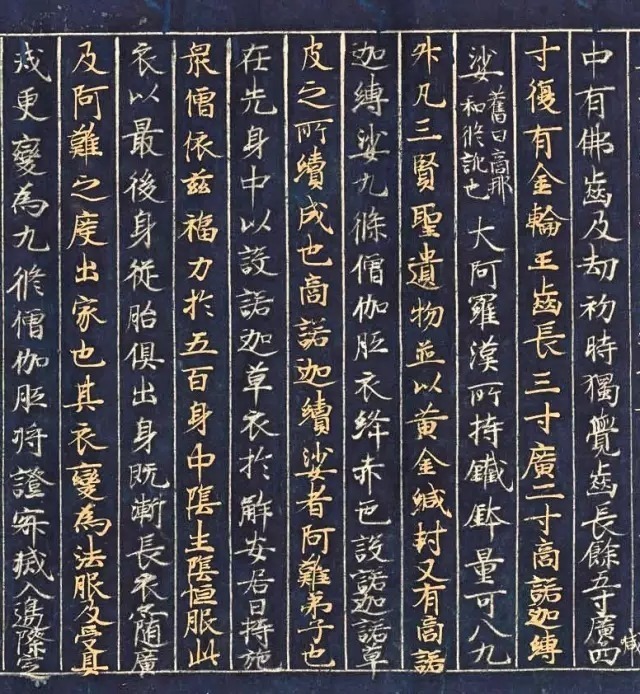 中有佛齒及劫初時獨覺齒長餘五寸廣四
寸復有金輪王齒長三寸廣二寸商諾迦縛
娑舊曰商那和修訛也大阿羅漢所持鐵鉢量可八九
升凡三賢聖遺物並以黃金緘封又有商諾
迦縛娑九條僧伽胝衣絳赤色設諾迦諾草
皮之所續成也商諾迦續娑者阿難弟子也
在先身中以設諾迦草衣於解安居日持施
眾僧依茲福力於五百身中陰生陰恒服此
衣以最後身從胎俱出身既漸長衣亦隨廣
及阿難之度出家也其衣變為法服及受具
戒更變為九條僧伽胝將證寂滅入邊際定